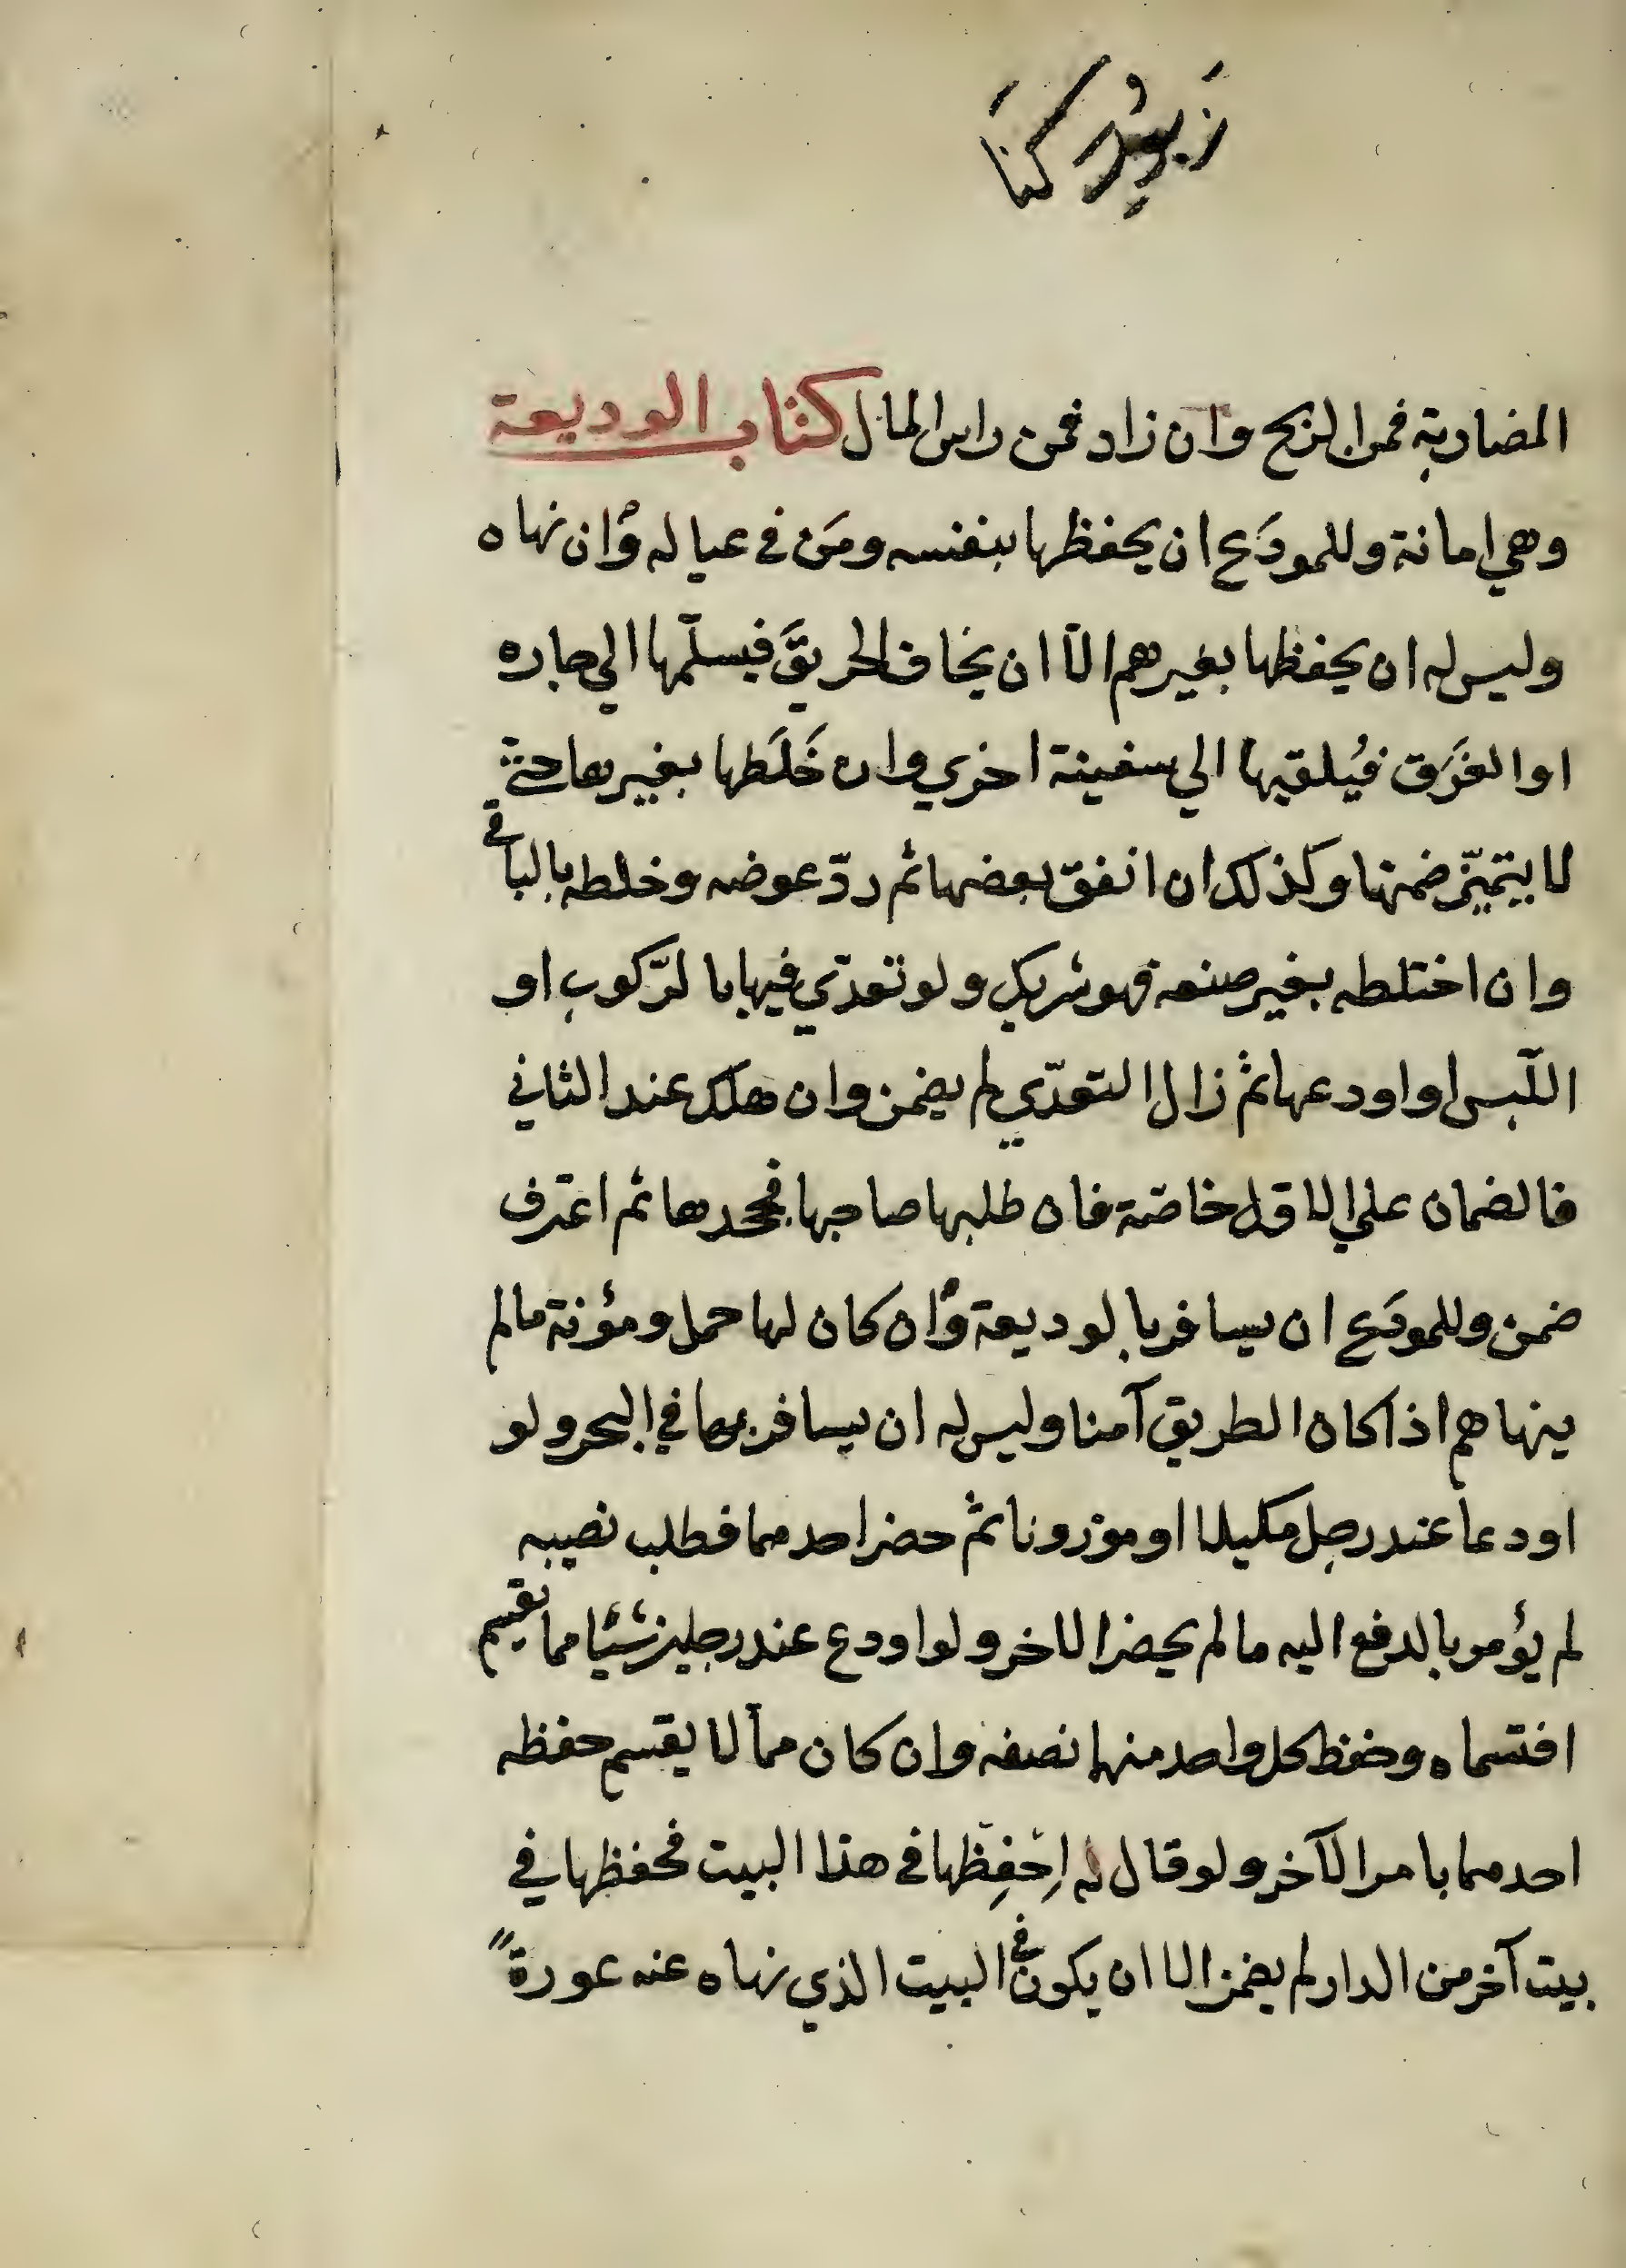 المضاربة فمن الربح وان زاد فمن راس المال كتاب الوديعة
وهي امانة وللمودَع ان يحفظها بنفسه ومَن في عياله وان نهاه
وليس له ان يحفظها بغيرهم الّا ان يخاف الحريقَ فيسلّمها الي جاره
او الغَرَق فيُلقيها الي سفينة اخري وان خَلَطها بغيرها حتي
لا يتميّز ضمنها وكذلك ان انفق بعضها ثم ردّ عوضه وخلطه بالباقي
وان اختلطه بغير صنعه فهو شريك ولو تعدّي فيها بالرّكوب او
اللّبس او اودعها ثم زال التعدّي لم يضمن وان هلك عند الثاني
فالضمان علي الاوّل خاصّة فان طلبها صاحبها فجحدها ثم اعترف
ضمن وللمودَع ان يسافر بالوديعة وان كان لها حمل ومؤنة ما لم
ينهاهم اذا كان الطريق آمنا وليس له ان يسافر بها في البحر ولو
اودعا عند رجل مكيلا او موزونا ثم حضر احدهما فطلب نصيبه
لم يؤمر بالدفع اليه ما لم يحضر الاخر ولو اودع عند رجلين شيئا مما يقسم
اقتسماه وحفظ كل واحد منهما نصفه وان كان مما لا يقسم حفظه
احدهما بامر الآخر ولو قال له اِحْفِظها في هذا البيت فحفظها في
بيت آخر من الدار لم يضمن الا ان يكون في البيت الذي نهاه عنه عورة